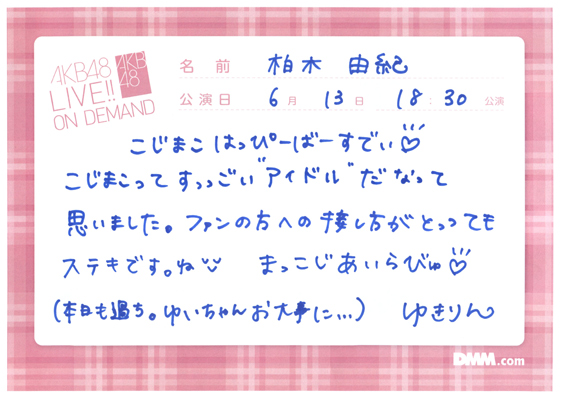 AKB48
LIVE!!
ON DEMAND
AKB
48
名前 柏木 由紀
公演日 6月 13日 18:30 公演
こじまこ はっぴーばーすでぃ♡
こじまこって すっっごい"アイドル"だなって
思いました。ファンの方への接し方がとってても
ステキです。ね まっこじあいらびゅ♡
(本日も過ち。ゆいちゃんお大事に…) ゆきりん
DMM.com